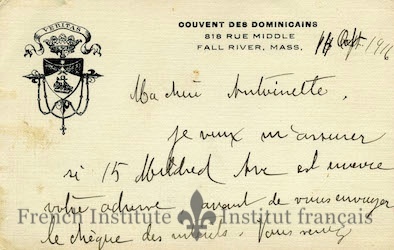 VERITAS
COUVENT DES DOMINICAINS
818 RUE MIDDLE
FALL RIVER, MASS.
14 1916
Ma chère Antoinette,
je veux m'assurer
si 15 Mildred Ave est encore
votre adresse avant de vous envoyer
le chèque des intérêts. Vous serez
French Institute Institut français